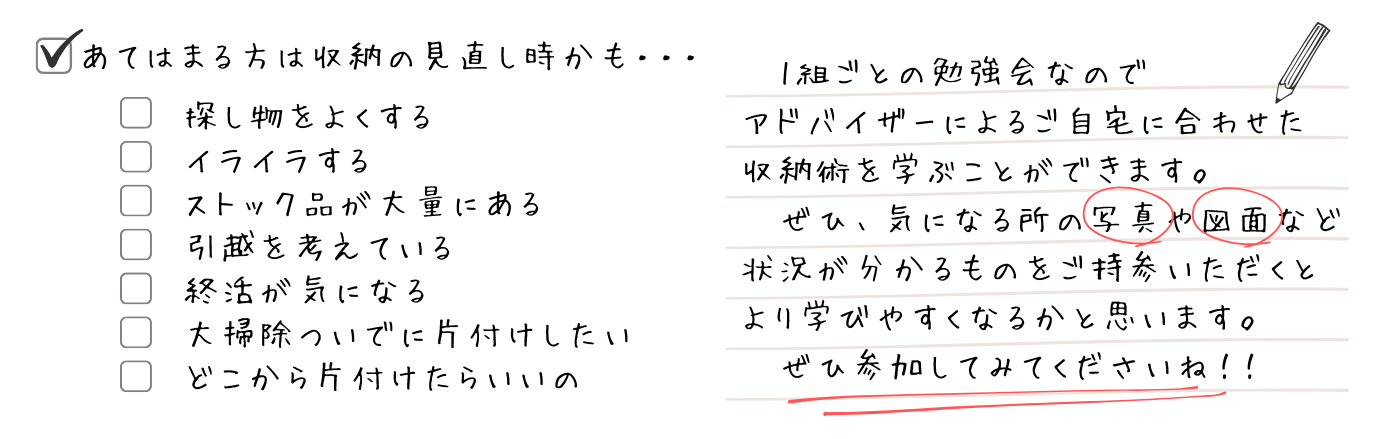 あてはまる方は収納の見直し時かも・・・
探し物をよくする
イライラする
ストック品が大量にある
引越を考えている
終活が気になる
大掃除ついでに片付けしたい
どこから片付けたらいいの
1組ごとの勉強会なので
アドバイザーによるご自宅に合わせた
収納術を学ぶことができます。
ぜひ、気になる所の写真や図面など
状況が分かるものをご持参いただくと
より学びやすくなるかと思います。
ぜひ参加してみてくださいね!!